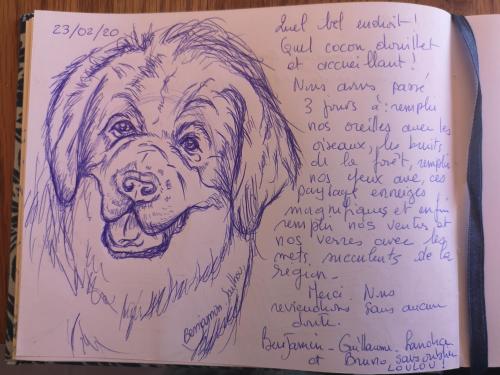 23/02/20
Quel bel endroit!
Quel cocon douillet
et accueillant!
Nous avons passé
3 jours à: remplir
nos oreilles avec les
oiseaux, les bruits
de la forêt, remplir
nos yeux avec ces
paysages enneigés
magnifiques et enfin
remplir nos ventres et
nos verres avec les
mets succulents de la
région.
Merci. Nous
reviendrons sans aucun
doute.
Benjamin - Guillaume -
et Bruno sans oublier
LOULOU!
Benjamin